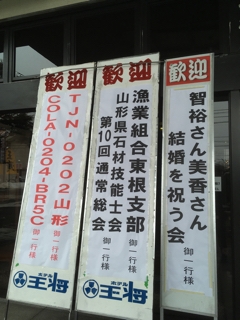 歓迎
智裕さん美香さん
結婚を祝う会
御一行様
歓迎
漁業組合東根支部
御一行様
山形県石材技能士会
第10回通常総会
御一行様
歓迎
TJN-0202山形
御一行様
COLA-0204-BR5C
御一行様
ホテル
王将
ホテル
王将